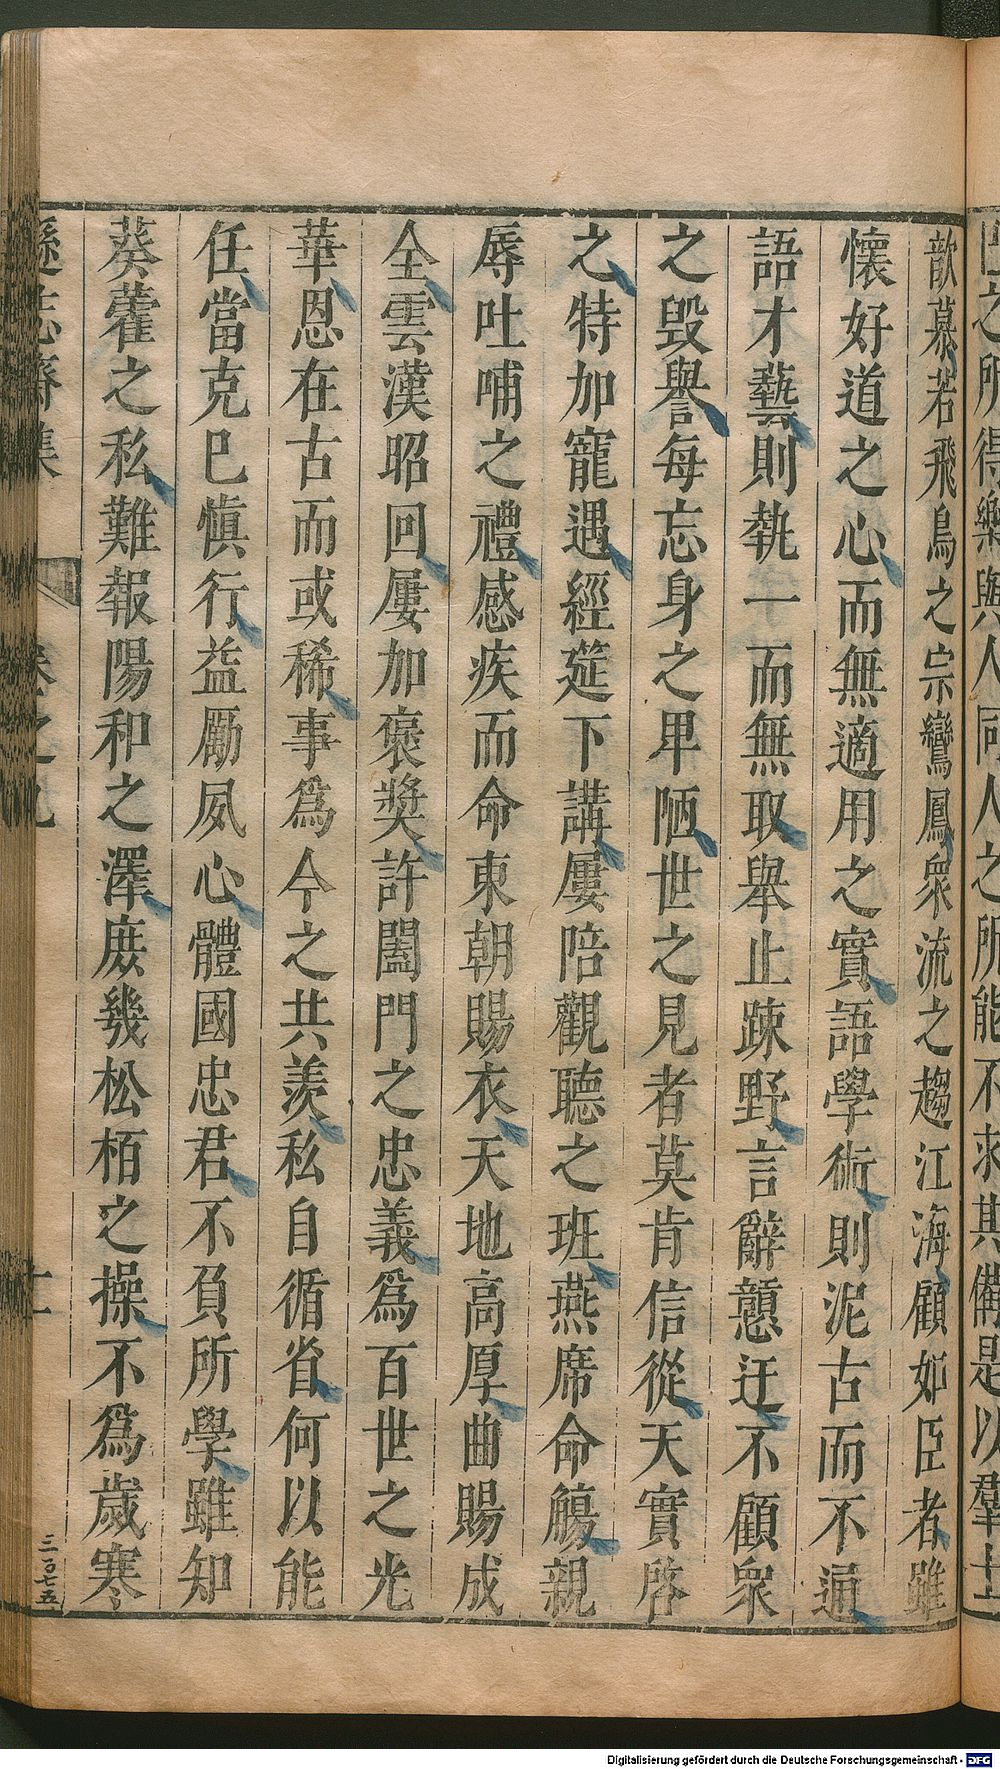 世之所得樂與人同人之所能不求其備是以羣士
歆慕若飛鳥之宗鸞鳳衆流之趨江海顧如臣者雖
懷好道之心而無適用之實語學術則泥古而不通
語才藝則執一而無取舉止踈野言辭戇迂不顧衆
之毀譽每忘身之卑陋世之見者莫肯信從天實啓
之特加寵遇經筵下講屢陪觀聽之班燕席命觴親
辱吐哺之禮感疾而命東朝賜衣天地高厚曲賜成
全雲漢昭回屢加褒奬許闔門之忠義爲百世之光
華恩在古而或稀事爲今之共羨私自循省何以能
任當克巳愼行益勵夙心體國忠君不負所學雖知
葵藿之私難報陽和之澤庶幾松栢之操不爲歲寒
遜志齋集
卷之九
十一
三百七五
Digitalisierung gefördert durch die Deutsche Forschungsgemeinschaft - DFG